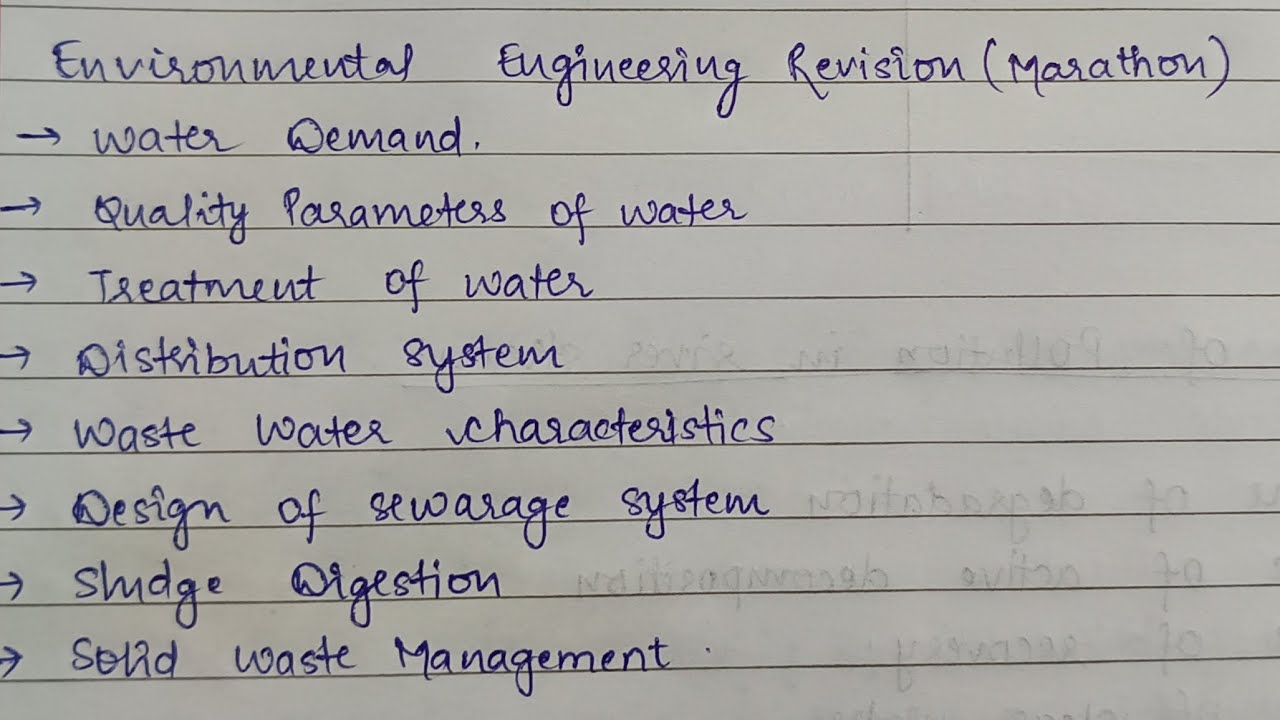 Environmental Engineering Revision (Marathon)
→ Water Demand.
→ Quality Parameters of water
→ Treatment of water
→ Distribution system
→ Waste Water characteristics
→ Design of sewarage system
→ Sludge Digestion
→ Solid waste Management.